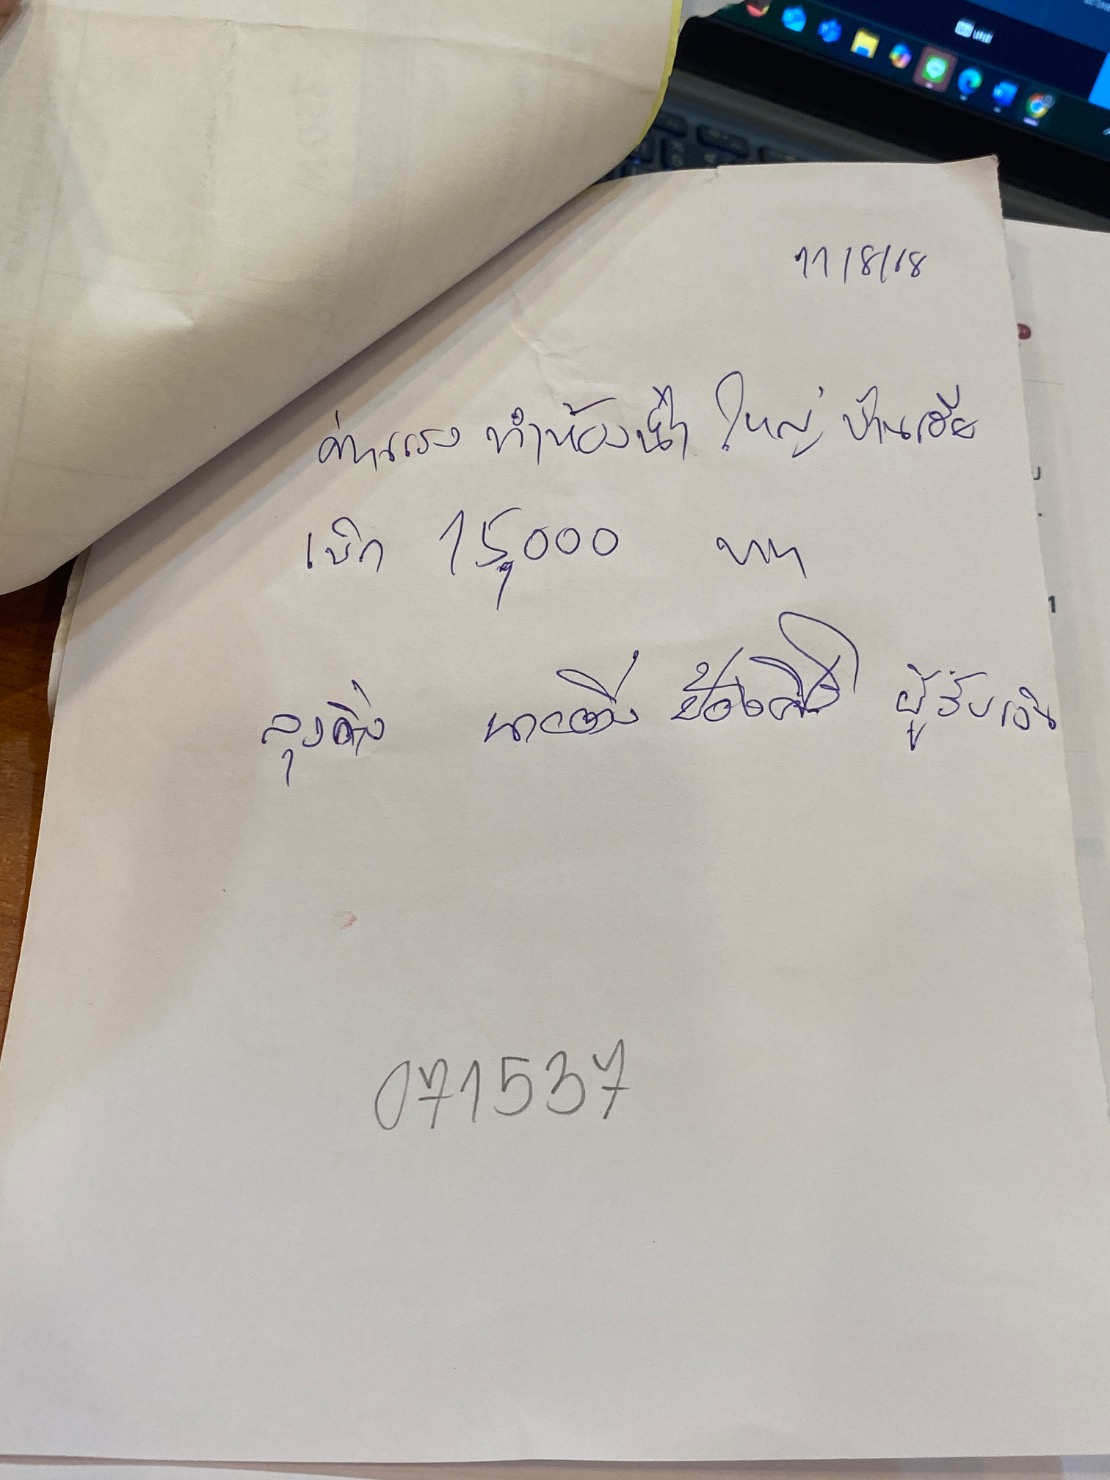 11/8/68
ค่าแรง ทำห้องน้ำ ใหญ่ บ้านเฮีย
เบิก 15,000 บาท
ลุงติ่ง นายติ่ง ผู้รับเงิน
071537